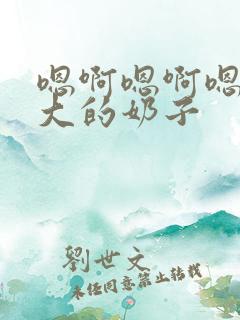 嗯啊嗯啊嗯
大的奶子
劉世文
未经同意禁止转载